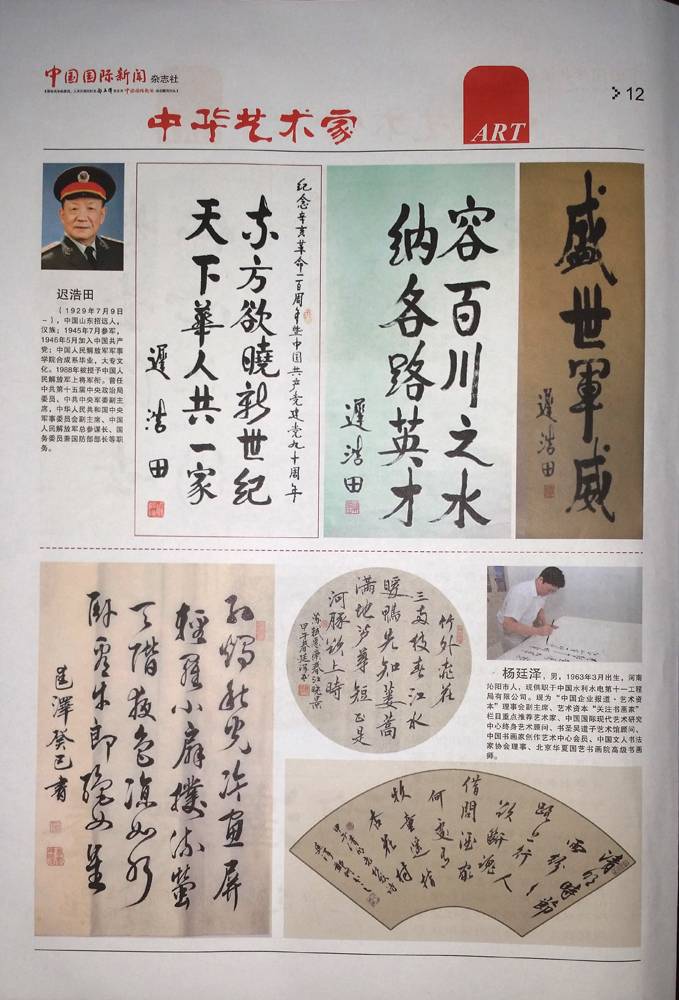 中国国际新闻 杂志社
12
中华艺术家
ART
迟浩田
(1929年7月9日
-),中国山东招远人,
汉族;1945年7月参军,
1946年5月加入中国共产
党;中国人民解放军军事
学院合成系毕业,大专文
化。1988年被授予中国人
民解放军上将军衔。曾任
中共第十五届中央政治局
委员、中共中央军委副主
席,中华人民共和国中央
军事委员会副主席、中国
人民解放军总参谋长、国
务委员兼国防部部长等职
务。
纪念辛亥革命一百周年暨中国共产党建党九十周年
东方欲曉新世纪
天下華人共一家
遲浩田
容百川之水
纳各路英才
遲浩田
盛世軍威
遲浩田
红燭秋光冷画屏
輕羅小扇撲流螢
天階夜色凉如水
卧看牛郎織女星
廷澤癸巳書
竹外桃花
三两枝春江水
暖鴨先知蒌蒿
满地芦芽短正是
河豚欲上時
杨廷泽,男,1963年3月出生,河南
沁阳市人,现供职于中国水利水电第十一工程
局有限公司。现为“中国企业报道·艺术资
本”理事会副主席、艺术资本“关注书画家”
栏目重点推荐艺术家、中国国际现代艺术研究
中心终身艺术顾问、书圣吴道子艺术馆顾问、
中国书画家创作艺术中心会员、中国文人书法
家协会理事、北京华夏国艺书画院高级书画
师。
清明時節
雨紛紛
路上行人
欲断魂
借問酒家
何處有
牧童遥指
杏花村